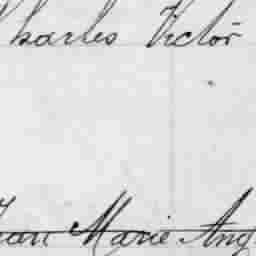 Charles Victor
Jean Marie Ang